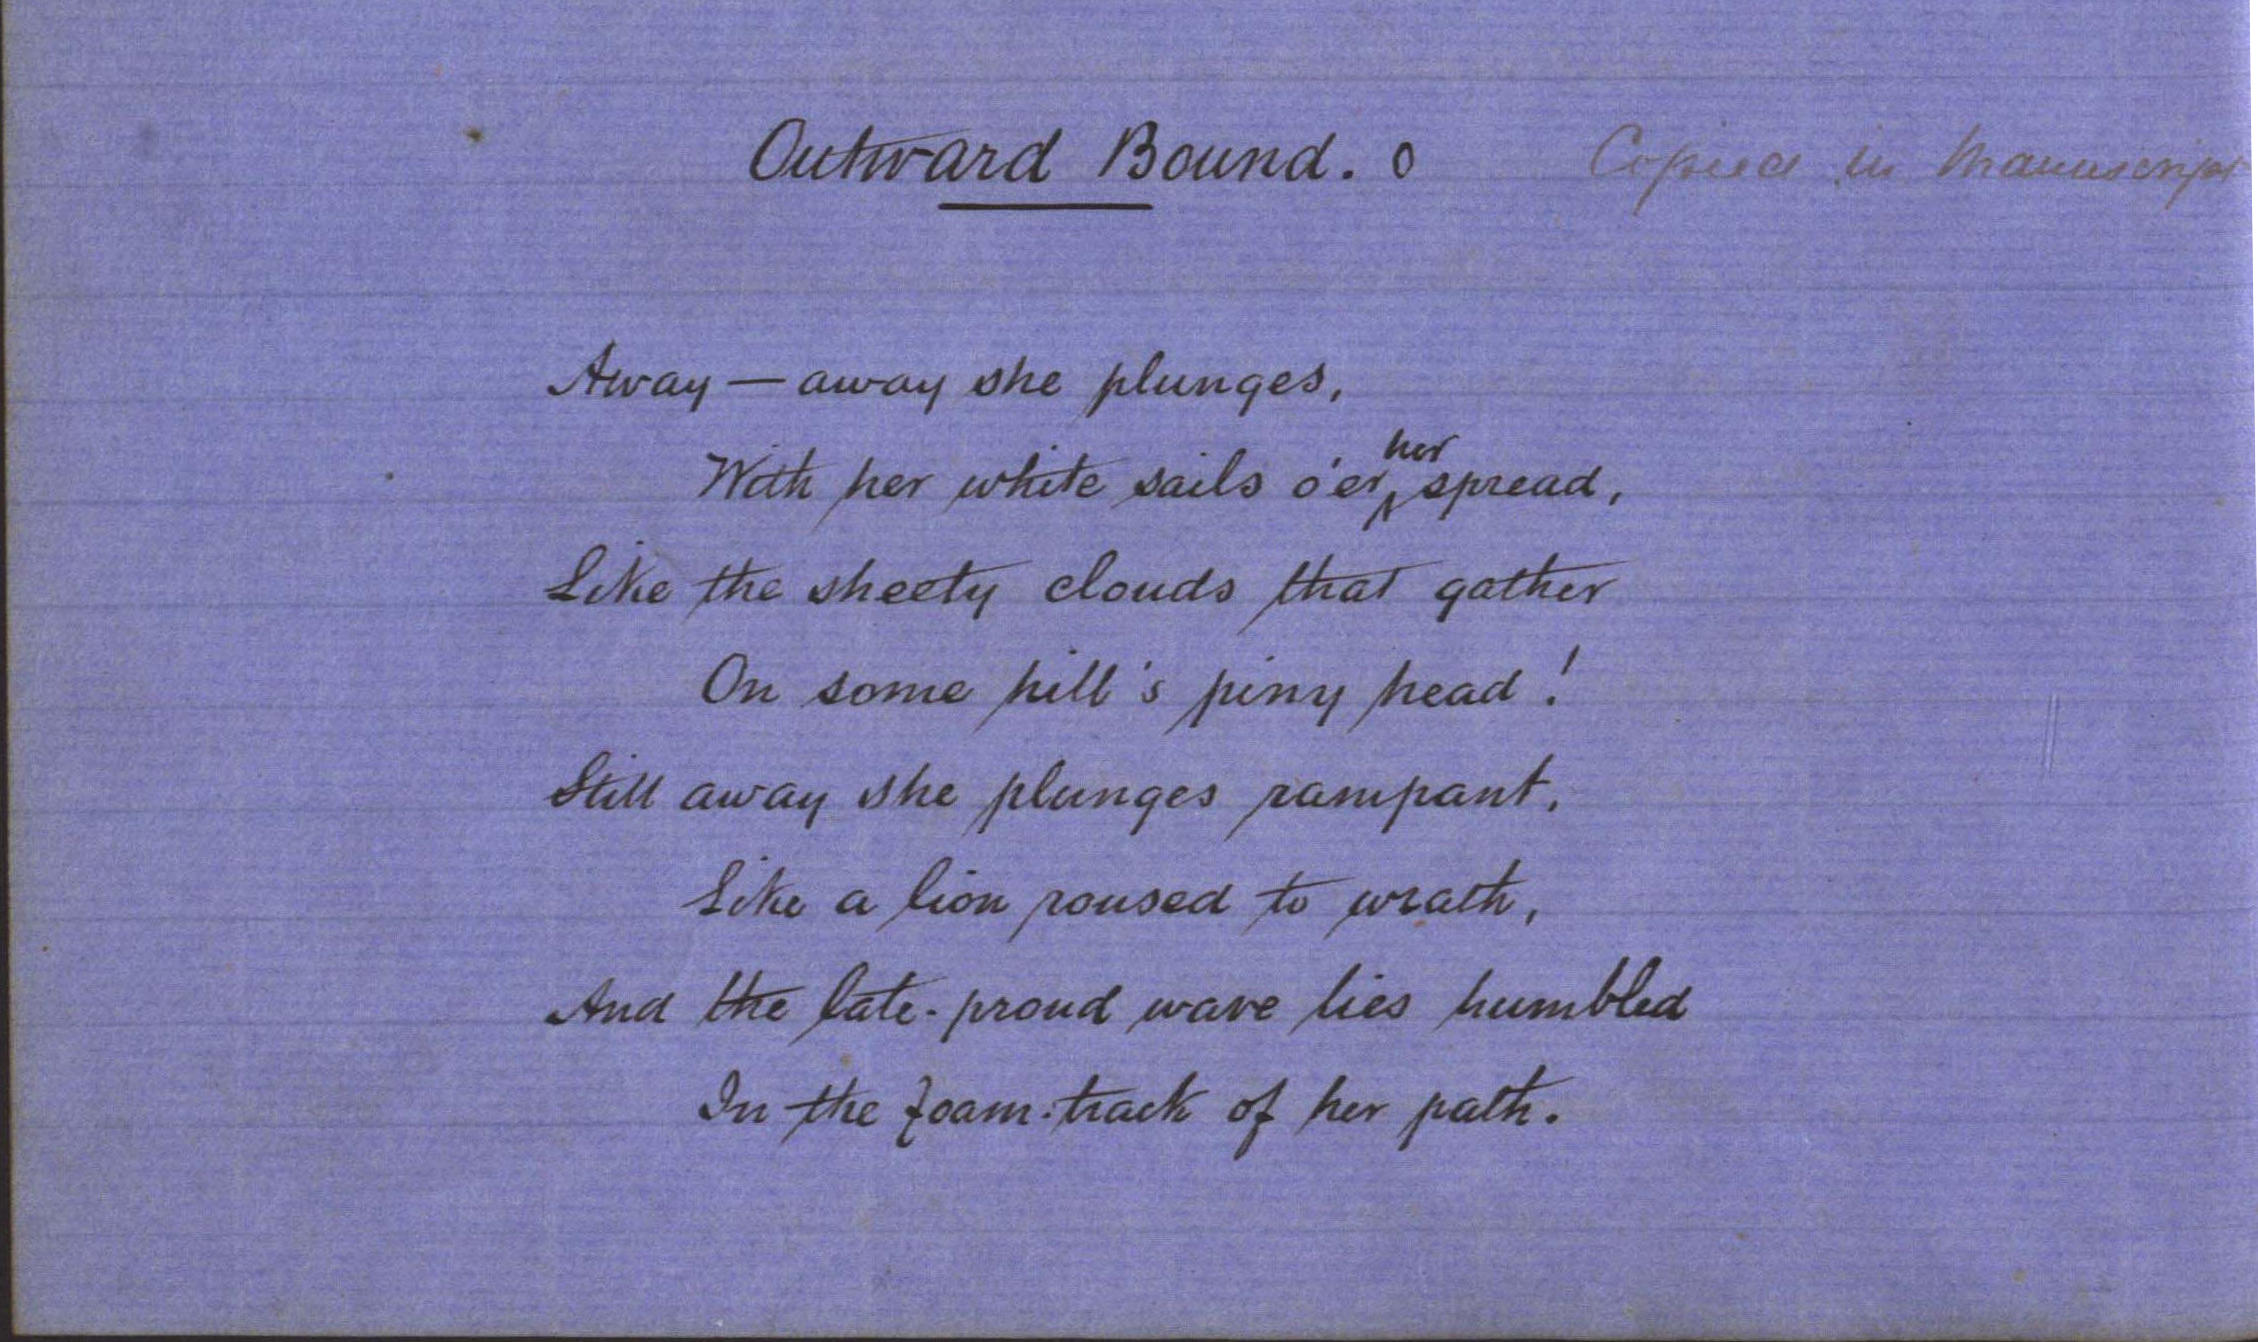 Outward Bound. o Copied in Manuscript
Away — away she plunges,
With her white sails o'er her spread,
Like the sheety clouds that gather
On some hill's piny head!
Still away she plunges rampant,
Like a lion roused to wrath,
And the late-proud wave lies humbled
In the foam-track of her path.